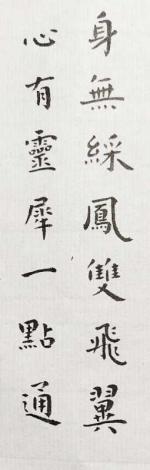 身無綵鳳雙飛翼
心有靈犀一點通